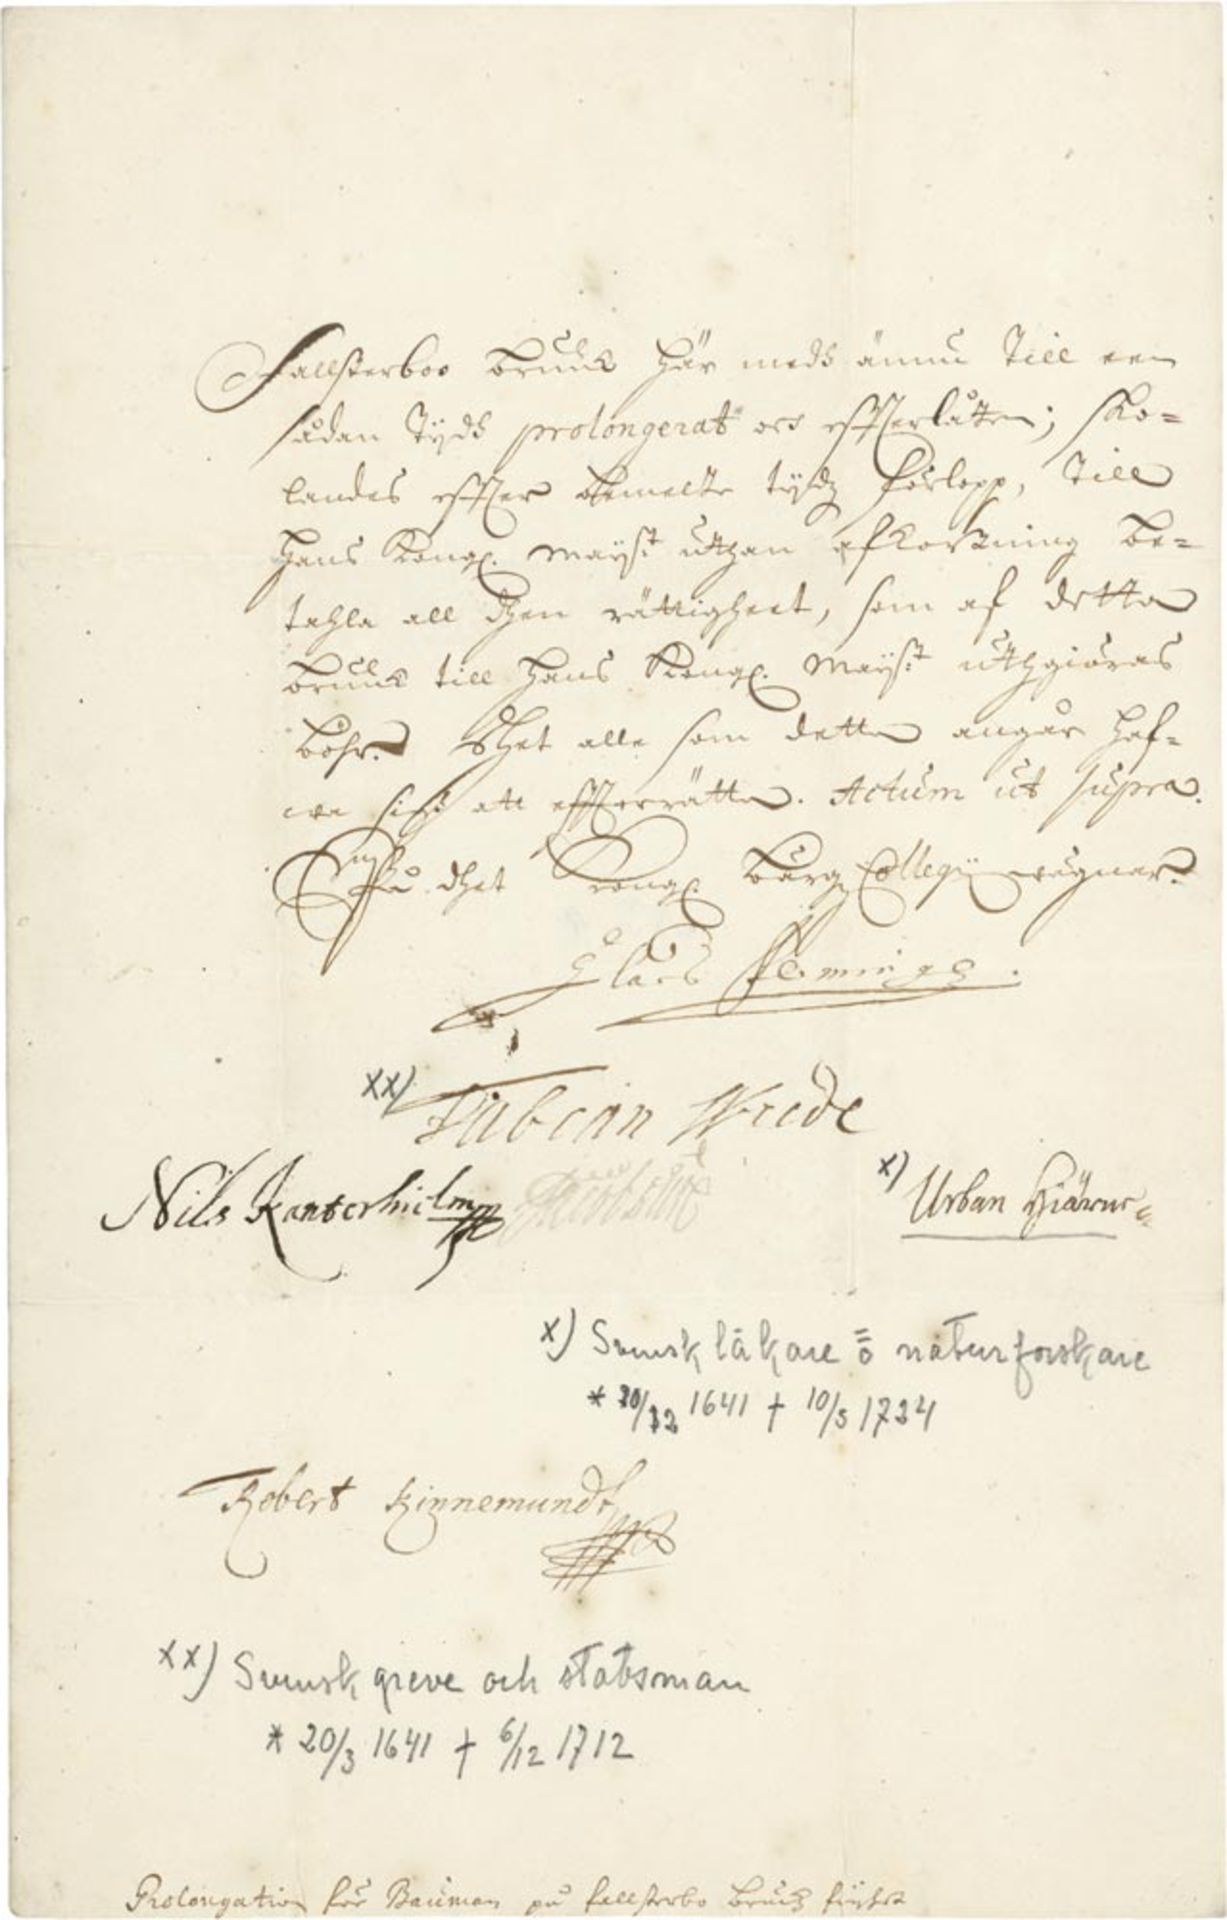 Fallsterboo bruuk här medh ännu till een
sådan tydh prolongerat och effterlåtten; sko=
landes effter bemelte tydz förlopp, till
hans Kongl. Mayst. uthan afkortning be=
tahla all dhen rättigheet, som af detta
bruuk till hans Kongl. Mayst. uthgiöras
böhr. Dhet alle som detta angår haf=
wa sigh att effterrätta. Actum ut supra.
På dhet Kongl. Bärgz Collegii wägnar.
Claes Fleming.
xx) Fabian Wrede
Nils Kanterhielm
x) Urban Hiärne
x) Svensk läkare o naturforskare
* 20/12 1641 † 10/3 1724
Robert Kinnemundt
xx) Svensk greve och statsman
* 20/3 1641 † 6/12 1712
Prolongation för Bauman på fallsterbo bruuk